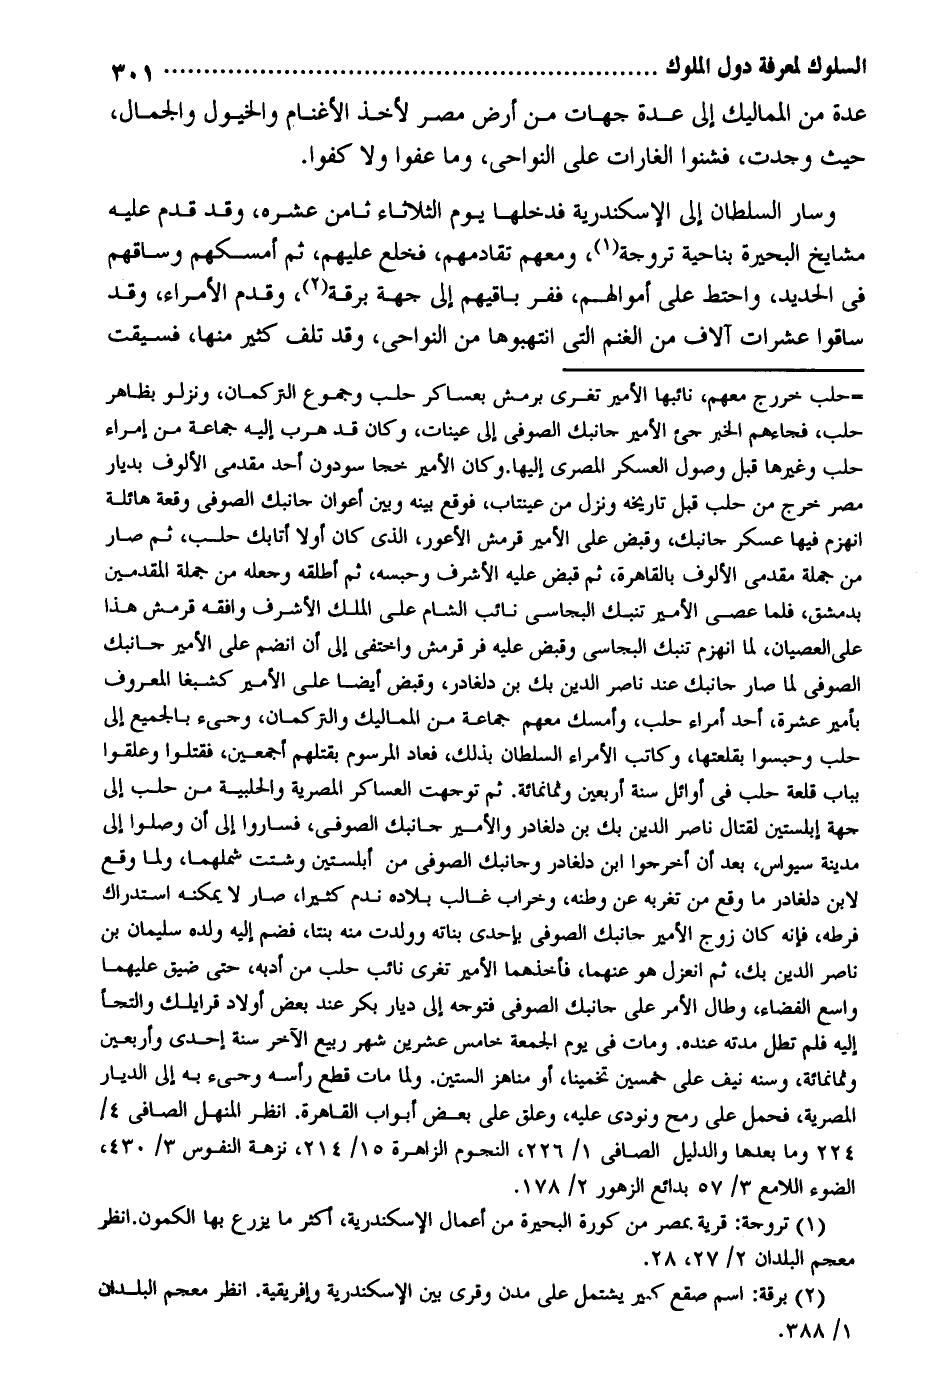 السلوك لمعرفة دول الملوك ............................................................ ٣٠١
عدة من المماليك إلى عدة جهات من أرض مصر لأخذ الأغنام والخيول والجمال،
حيث وجدت، فشنوا الغارات على النواحى، وما عفوا ولا كفوا.
وسار السلطان إلى الإسكندرية فدخلها يوم الثلاثاء ثامن عشره، وقد قدم عليه
مشايخ البحيرة بناحية تروجة(١)، ومعهم تقادمهم، فخلع عليهم، ثم أمسكهم وساقهم
فى الحديد، واحتط على أموالهم، ففر باقيهم إلى جهة برقة(٢)، وقدم الأمراء، وقد
ساقوا عشرات آلاف من الغنم التى انتهبوها من النواحى، وقد تلف كثير منها، فسيقت
=حلب خررج معهم، نائبها الأمير تغرى برمش بعساكر حلب وجموع التركمان، ونزلو بظاهر
حلب، فجاءهم الخبر جئ الأمير جانبك الصوفى إلى عينات، وكان قد هرب إليه جماعة من إمراء
حلب وغيرها قبل وصول العسكر المصرى إليها.وكان الأمير خجا سودون أحد مقدمى الألوف بديار
مصر خرج من حلب قبل تاريخه ونزل من عينتاب، فوقع بينه وبين أعوان جانبك الصوفى وقعة هائلة
انهزم فيها عسكر جانبك، وقبض على الأمير قرمش الأعور، الذى كان أولا أتابك حلب، ثم صار
من جملة مقدمى الألوف بالقاهرة، ثم قبض عليه الأشرف وحبسه، ثم أطلقه وجعله من جملة المقدمين
بدمشق، فلما عصى الأمير تنبك البجاسى نائب الشام على الملك الأشرف وافقه قرمش هذا
على العصيان، لما انهزم تنبك البجاسى وقبض عليه فر قرمش واختفى إلى أن انضم على الأمير جانبك
الصوفى لما صار جانبك عند ناصر الدين بك بن دلغادر، وقبض أيضا على الأمير كشبغا المعروف
بأمير عشرة، أحد أمراء حلب، وأمسك معهم جماعة من المماليك والتركمان، وجىء بالجميع إلى
حلب وحبسوا بقلعتها، وكاتب الأمراء السلطان بذلك، فعاد المرسوم بقتلهم أجمعين، فقتلوا وعلقوا
بباب قلعة حلب فى أوائل سنة أربعين وثمانمائة. ثم توجهت العساكر المصرية والحلبية من حلب إلى
جهة إبلستين لقتال ناصر الدين بك بن دلغادر والأمير جانبك الصوفى، فساروا إلى أن وصلوا إلى
مدينة سيواس، بعد أن أخرجوا ابن دلغادر وجانبك الصوفى من أبلستين وشتت شملهما، ولما وقع
لابن دلغادر ما وقع من تغربه عن وطنه، وخراب غالب بلاده ندم كثيرا، صار لا يمكنه استدراك
فرطه، فإنه كان زوج الأمير جانبك الصوفى بإحدى بناته وولدت منه بنتا، فضم إليه ولده سليمان بن
ناصر الدين بك، ثم انعزل هو عنهما، فأخذهما الأمير تغرى نائب حلب من أدبه، حتى ضيق عليهما
واسع الفضاء، وطال الأمر على جانبك الصوفى فتوجه إلى ديار بكر عند بعض أولاد قرايلك والتجأ
إليه فلم تطل مدته عنده. ومات فى يوم الجمعة خامس عشرين شهر ربيع الآخر سنة إحدى وأربعين
وثمانمائة، وسنه نيف على خمسين تخمينا، أو مناهز الستين. ولما مات قطع رأسه وجىء به إلى الديار
المصرية، فحمل على رمح ونودى عليه، وعلق على بعض أبواب القاهرة. انظر المنهل الصافى ٤/
٢٢٤ وما بعدها والدليل الصافى ١/ ٢٢٦، النجوم الزاهرة ١٥/ ٢١٤، نزهة النفوس ٣/ ٤٣٠،
الضوء اللامع ٣/ ٥٧ بدائع الزهور ٢/ ١٧٨.
(١) تروجة: قرية بمصر من كورة البحيرة من أعمال الإسكندرية، أكثر ما يزرع بها الكمون.انظر
معجم البلدان ٢/ ٢٧، ٢٨.
(٢) برقة: اسم صقع كبير يشتمل على مدن وقرى بين الإسكندرية وإفريقية. انظر معجم البلدان
١/ ٣٨٨.